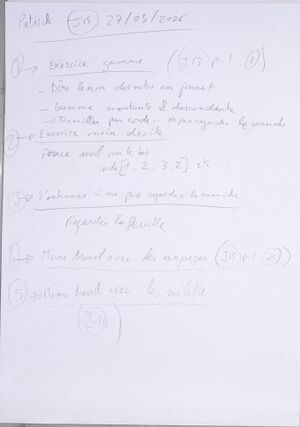 Patrick J15 27/05/2026
1 → Exercice gamme (J13 p.1 1)
- Dire le nom des notes en jouant
- Gamme montante & descendante
→ Travailler par code... Ne pas regarder le manche
2 → Exercice main droite
Pouce seul vers le bas
code [1, 2, 3, 2] etc...
3 → S'entrainer à ne pas regarder le manche
Regarder la feuille
→ Meme travail avec les arpeges (J13 p.1 2)
5 → Meme travail avec les